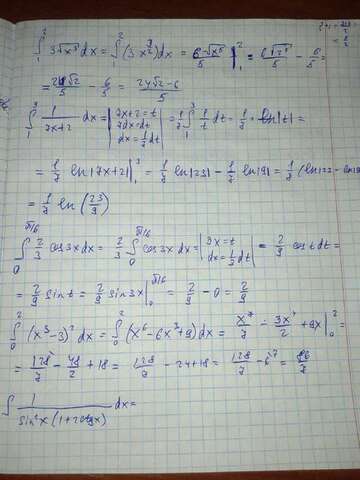 ∫₁² 3√x³ dx = ∫₁² (3x^(3/2)) dx = 6·√x⁵/5 |₁² = 6√2⁵/5 − 6/5 =
= 24√2/5 − 6/5 = (24√2−6)/5
∫₁³ 1/(7x+2) dx = |7x+2=t 7dx=dt dx=1/7 dt| = 1/7 ∫₁³ 1/t dt = 1/7 · ln|t| =
= 1/7 ln|7x+2| |₁³ = 1/7 ln|23| − 1/7 ln|9| = 1/7 (ln|23|−ln|9|
= 1/7 ln (23/9)
∫₀^(π/6) 2/3 cos3x dx = 2/3 ∫₀^(π/6) cos3x dx = |3x=t dx=1/3 dt| = 2/9 cost dt =
= 2/9 sint = 2/9 sin3x |₀^(π/6) = 2/9 − 0 = 2/9
∫₀² (x³−3)² dx = ∫₀² (x⁶−6x³+9) dx = x⁷/7 − 3x⁴/2 + 9x |₀² =
= 128/7 − 48/2 + 18 = 128/7 − 24+18 = 128/7 − 6 = 86/7
∫ 1/(sin²x(1+2ctgx)) dx =